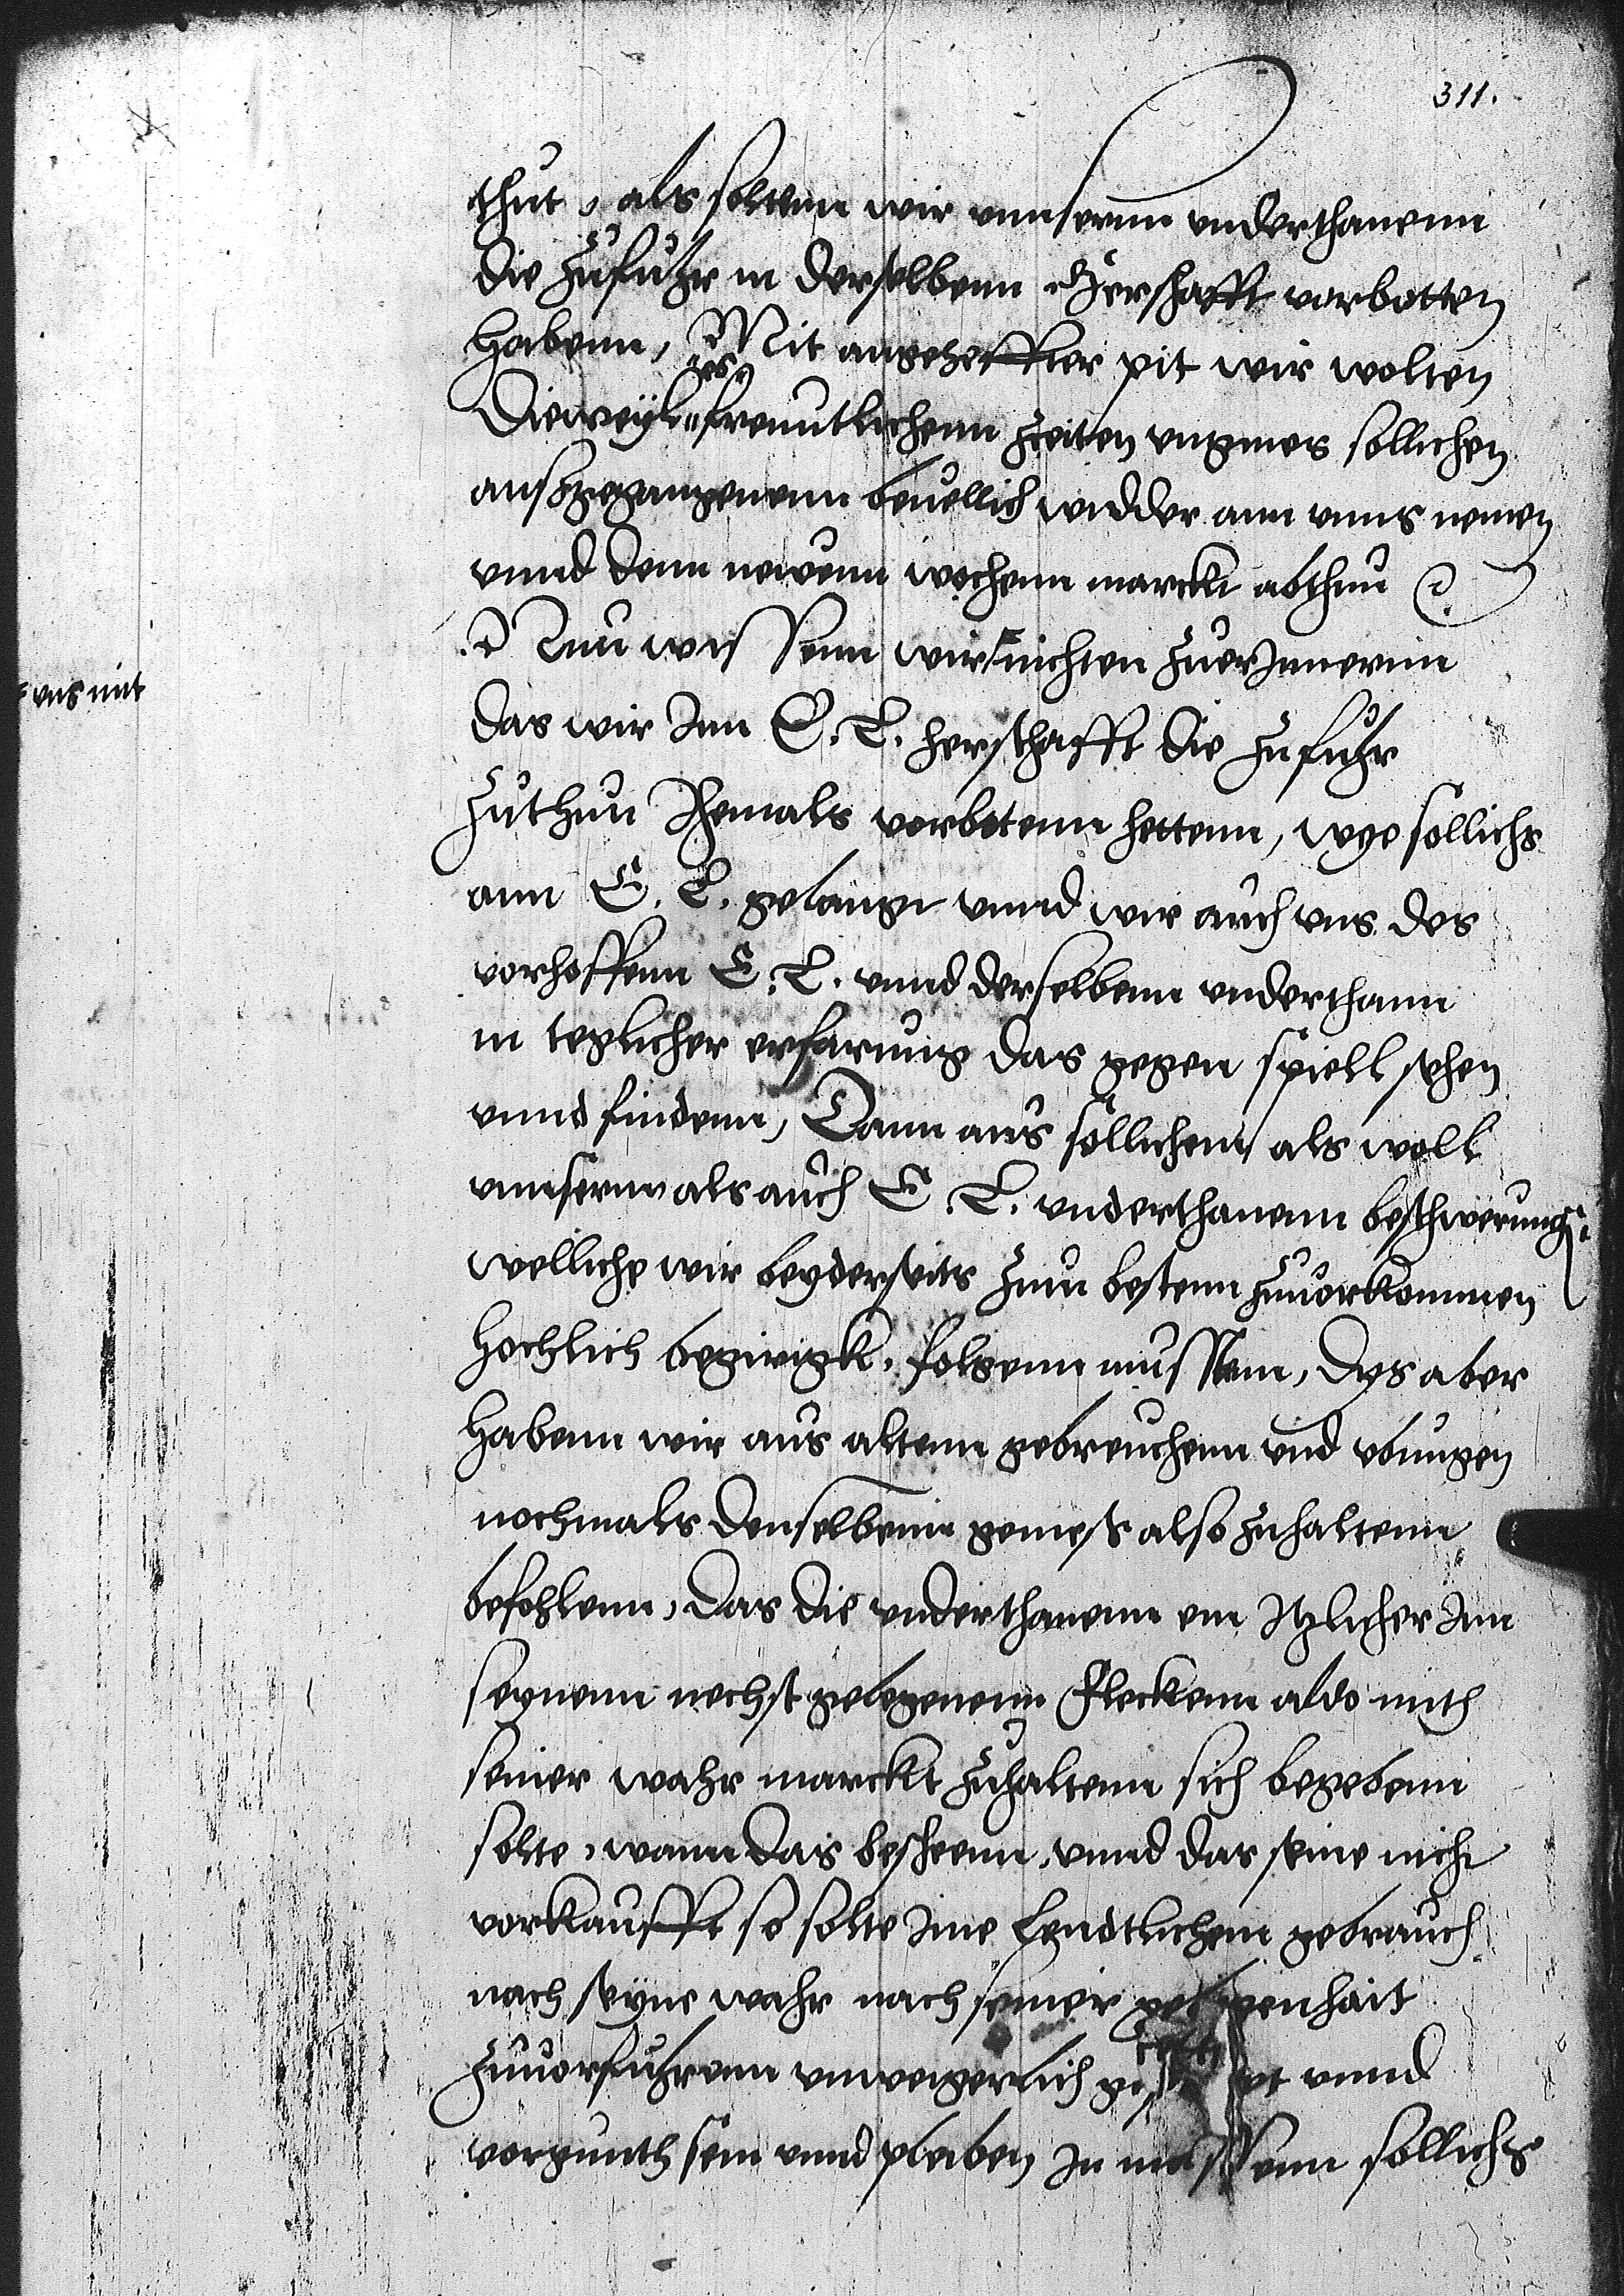 311.
thut, als soltenn wir vnnsernn vnderthanenn
die zufuhr in derselbenn Hirschafft vorbotten
habenn, Mit angeheffter pit wir wolten
Dieweyl es
frenntlichenn zeiten vngmes sollichen
außgegangenenn beuellich widder ann vnns nemen
vnnd denn newenn wochenn marckt abthun
Nun wissenn wir nichten zuerInnernn
vns mit
das wir Inn E. L. herschafft die zufuhr
zuthun Ihemals vorbotenn hettenn, wye sollichs
ann E. L. gelangt vnnd wir auch vns des
vorhoffenn E. L. vnnd derselbenn vnderthann
in teglicher erfarung das gegen spiell sehen
vnnd findenn, Dann aus söllichem als woll
vnnsernn als auch E. L. vnderthanenn beschwerung
welliche wir beyderseits zum bestenn zuuorkommen
hochlich begirigk. folgenn mussenn, Dys aber
habenn wir aus altenn gebreuchenn vnd vbungen
nochmals denselbenn gemeß also zuhaltenn
befohlenn, Das die vnderthanenn ein Itzlicher Inn
seynenn nechst gelegenenn Fleckenn aldo mith
seiner wahr marckt zuhaltenn sich begebenn
solte, wann das bescheenn, vnnd das seine nicht
vorkaufft so solte Ime lendtlichem gebrauch
nach seyne wahr nach seiner gelegenhait
zuuorfuhrenn vnwegerlich vnnd
vorgunth sein vnnd pleiben In massenn sollichs